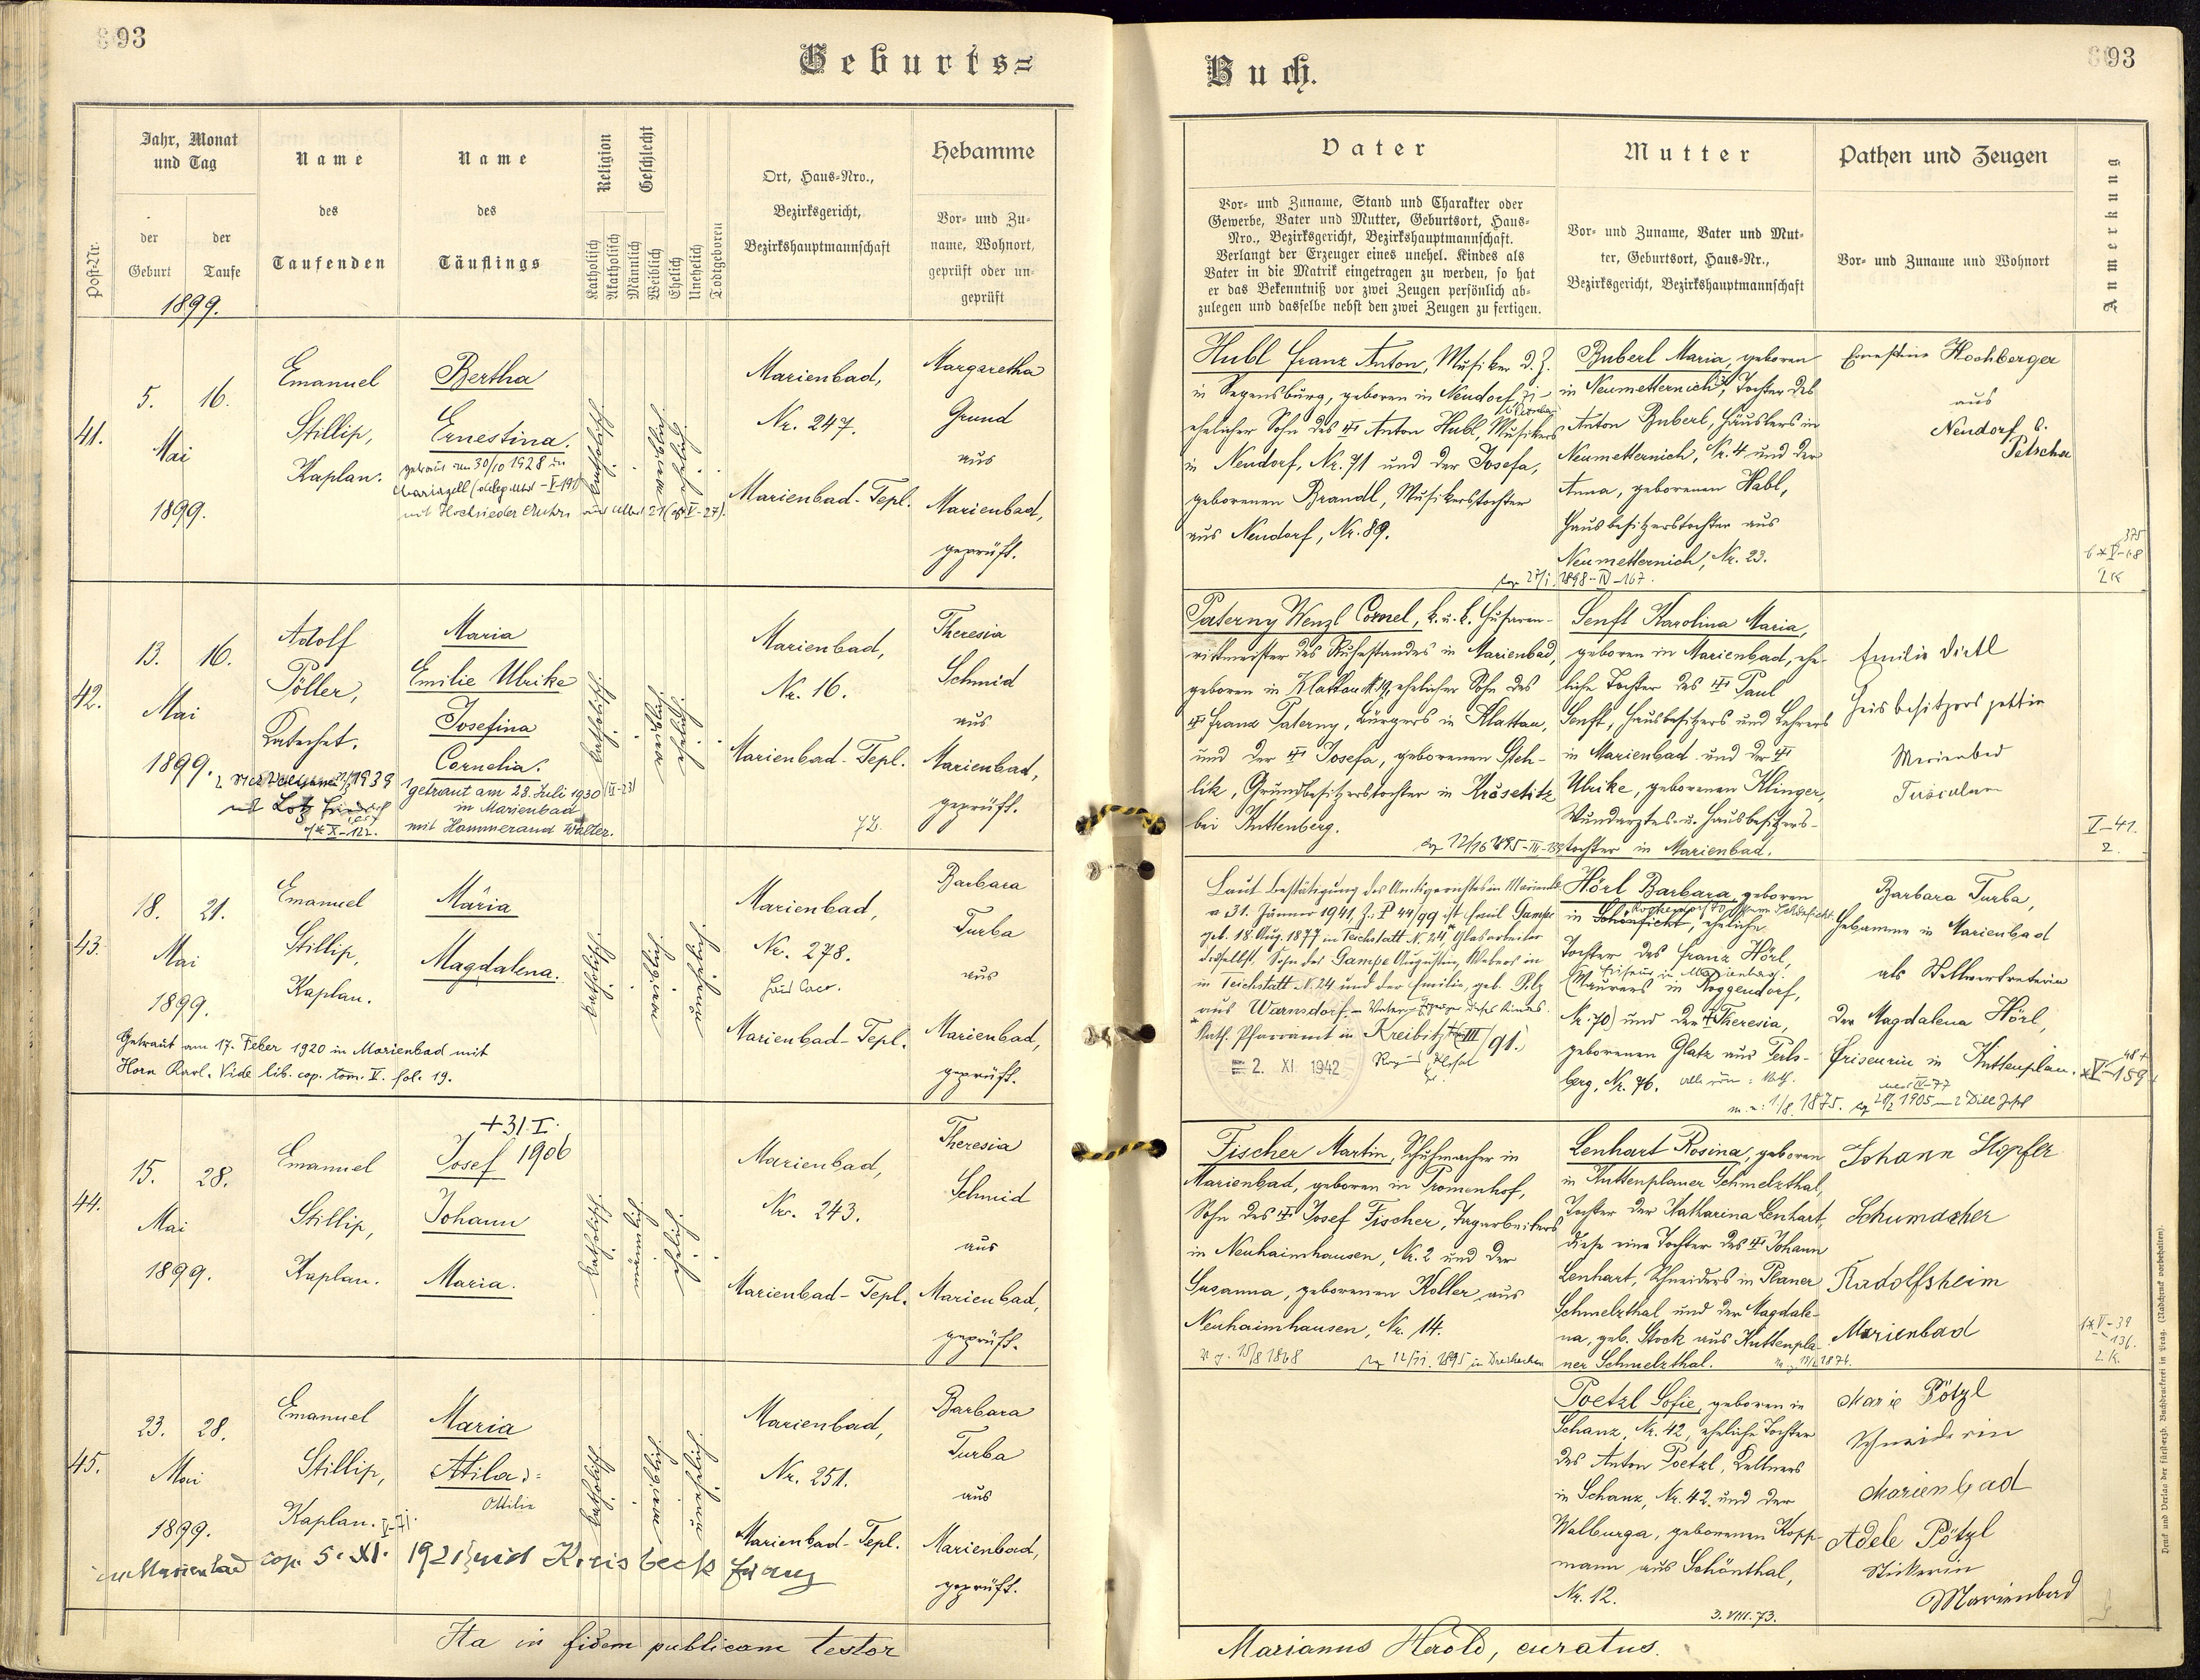 93
Geburts=
Jahr, Monat
und Tag
der
Geburt
der
Taufe
1899.
Post-Nr.
Name
des
Taufenden
Name
des
Täuflings
Religion
Katholisch
Akatholisch
Geschlecht
Männlich
Weiblich
Ehelich
Unehelich
Todtgeboren
Ort, Haus-Nro.,
Bezirksgericht,
Bezirkshauptmannschaft
Hebamme
Vor- und Zu-
name, Wohnort,
geprüft oder un-
geprüft
41.
5. 16.
Mai
1899.
Emanuel
Stillip,
Kaplan.
Bertha
Ernestina.
getraut am 30/10 1928 in
Mariazell
mit Hochrieder
katholisch
weiblich
ehelich
Marienbad,
Nr. 247.
Marienbad-Tepl.
Margaretha
Grund
aus
Marienbad,
geprüft.
42.
13. 16.
Mai
1899.
Adolf
Pöller,
Katechet.
1939
mit Lotz
X-122.
Maria
Emilie Ulrike
Josefina
Cornelia.
getraut am 28. Juli 1930
in Marienbad
mit Hammerand Walter.
katholisch
weiblich
ehelich
Marienbad,
Nr. 16.
Marienbad-Tepl.
72.
Theresia
Schmid
aus
Marienbad,
geprüft.
43.
18. 21.
Mai
1899.
Emanuel
Stillip,
Kaplan.
Maria
Magdalena.
Getraut am 17. Feber 1920 in Marienbad mit
Horn Karl. Vide lib. cop. tom. V. fol. 19.
katholisch
weiblich
unehelich
Marienbad,
Nr. 278.
Marienbad-Tepl.
Barbara
Turba
aus
Marienbad,
geprüft.
44.
15. 28.
Mai
1899.
Emanuel
Stillip,
Kaplan.
+31.I.
Josef 1906
Johann
Maria.
katholisch
männlich
ehelich
Marienbad,
Nr. 243.
Marienbad-Tepl.
Theresia
Schmid
aus
Marienbad,
geprüft.
45.
23. 28.
Mai
1899.
Emanuel
Stillip,
Kaplan.
Maria
Atila:=
Ottilie
in Marienbad cop. 5. XI. 1921 mit Franz
katholisch
weiblich
unehelich
Marienbad,
Nr. 251.
Marienbad-Tepl.
Barbara
Turba
aus
Marienbad,
geprüft.
Ita in fidem publicam testor
93
Buch.
Vater
Vor- und Zuname, Stand und Charakter oder
Gewerbe, Vater und Mutter, Geburtsort, Haus-
Nro., Bezirksgericht, Bezirkshauptmannschaft.
Verlangt der Erzeuger eines unehel. Kindes als
Vater in die Matrik eingetragen zu werden, so hat
er das Bekenntniß vor zwei Zeugen persönlich ab-
zulegen und dasselbe nebst den zwei Zeugen zu fertigen.
Mutter
Vor- und Zuname, Vater und Mut-
ter, Geburtsort, Haus-Nr.,
Bezirksgericht, Bezirkshauptmannschaft
Pathen und Zeugen
Vor- und Zuname und Wohnort
Anmerkung
Hubl Franz Anton, Musiker d. Z.
in Regensburg, geboren in Neudorf,
ehelicher Sohn des Anton Hubl, Musikers
in Neudorf, Nr. 71 und der Josefa,
geborenen Brandl, Musikerstochter
aus Neudorf, Nr. 89.
Buberl Maria, geboren
in Neumetternich, Tochter des
Anton Buberl, Häuslers in
Neumetternich, Nr. 4 und der
Anna, geborenen Habl,
Hausbesitzerstochter aus
Neumetternich, Nr. 23.
1898-IV-167.
Ernestine Hochberger
aus
Neudorf b.
Petschau
Paterny Wenzl Cornel, k. u. k. Husaren-
rittmeister des Ruhestandes in Marienbad,
geboren in Klattau 19, ehelicher Sohn des
Franz Paterny, Bürgers in Klattau,
und der Josefa, geborenen Steh-
lik, Grundbesitzerstochter in Krösetitz
bei Kuttenberg.
Senft Karolina Maria,
geboren in Marienbad, ehe-
liche Tochter des Paul
Senft, Hausbesitzers und Lehrers
in Marienbad und der
Ulrike, geborenen Klinger,
Wundarztes- u. Hausbesitzers-
tochter in Marienbad.
Emilie Dietl
Hausbesitzersgattin
Marienbad
Tusculum
V-41.
2.
Laut Bestätigung des Amtsgerichtes in Marienbad
v. 31. Jänner 1941, Z: P 44/99 ist Emil Gampe
geb. 18. Aug. 1877 in Teichstatt N. 24, Glasarbeiter
daselbst, Sohn des Gampe Augustin, Webers in
in Teichstatt N. 24 und der Emilie, geb. Pilz
aus Warnsdorf - Vater dieses Kindes.
Kath. Pfarramt in Kreibitz III/91.
2. XI. 1942
Hörl Barbara, geboren
in Schönficht, eheliche
Tochter des Franz Hörl,
Maurers in Roggendorf,
Nr. 70) und der Theresia,
geborenen Glatz aus Perls-
berg, Nr. 76.
1/8. 1875.
Barbara Turba,
Hebamme in Marienbad
als Stellvertreterin
der Magdalena Hörl,
Friseurin in Kuttenplan.
V-159
Fischer Martin, Schuhmacher in
Marienbad, geboren in Promenhof,
Sohn des Josef Fischer, Tagarbeiters
in Neuhaimhausen, Nr. 2 und der
Susanna, geborenen Koller aus
Neuhaimhausen, Nr. 14.
15/8 1868
12/11. 1895 in Dreihacken
Lenhart Rosina, geboren
in Kuttenplaner Schmelzthal,
Tochter der Katharina Lenhart,
diese eine Tochter des Johann
Lenhart, Schneiders in Planer
Schmelzthal, und der Magdale-
na, geb. Stock aus Kuttenpla-
ner Schmelzthal.
Johann Hopfer
Schumacher
Radolfsheim
Marienbad
V-39
136.
2.K.
Poetzl Sofie, geboren in
Schanz, Nr. 42, eheliche Tochter
des Anton Poetzl, Kellners
in Schanz, Nr. 42 und der
Walburga, geborenen Kopp-
mann aus Schönthal,
Nr. 12.
3. VIII. 73.
Marie Pötzl
Schneiderin
Marienbad
Adele Pötzl
Stickerin
Marienbad
Marianus Herold, curatus.
Druck und Verlag der fürsterzb. Buchdruckerei in Prag. (Nachdruck vorbehalten).